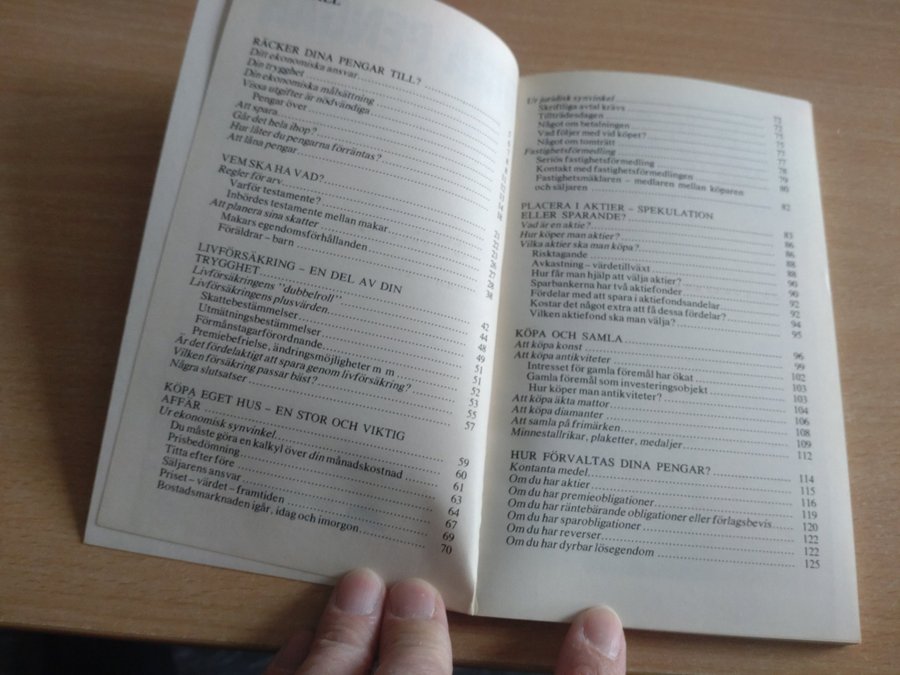 RÄCKER DINA PENGAR TILL?
Ditt ekonomiska ansvar
Din trygghet
Din ekonomiska målsättning
Vissa utgifter är nödvändiga
Pengar över
Att spara
Går det hela ihop?
Hur låter du pengarna förräntas?
Att låna pengar
VEM SKA HA VAD?
Regler för arv
Varför testamente?
Inbördes testamente mellan makar
Att planera sina skatter
Makars egendomsförhållanden
Föräldrar – barn
LIVFÖRSÄKRING – EN DEL AV DIN
TRYGGHET
Livförsäkringens "dubbelroll"
Livförsäkringens plusvärden 42
Skattebestämmelser 44
Utmätningsbestämmelser 48
Förmånstagarförordnande 49
Premiebefrielse, ändringsmöjligheter m m 51
Är det fördelaktigt att spara genom livförsäkring? 51
Vilken försäkring passar bäst? 52
Några slutsatser 53
55
57
KÖPA EGET HUS – EN STOR OCH VIKTIG
AFFÄR
Ur ekonomisk synvinkel 59
Du måste göra en kalkyl över din månadskostnad 60
Prisbedömning 61
Titta efter före 63
Säljarens ansvar 64
Priset – värdet – framtiden 67
Bostadsmarknaden igår, idag och imorgon 69
70
Ur juridisk synvinkel
Skriftliga avtal krävs
Tillträdesdagen
Något om betalningen
Vad följer med vid köpet?
Något om tomträtt
Fastighetsförmedling
Seriös fastighetsförmedling
Kontakt med fastighetsförmedlingen
Fastighetsmäklaren – medlaren mellan köparen
och säljaren
PLACERA I AKTIER – SPEKULATION
ELLER SPARANDE?
Vad är en aktie?
Hur köper man aktier?
Vilka aktier ska man köpa?
Risktagande
Avkastning – värdetillväxt
Hur får man hjälp att välja aktier?
Sparbankerna har två aktiefonder
Fördelar med att spara i aktiefondsandelar
Kostar det något extra att få dessa fördelar?
Vilken aktiefond ska man välja?
KÖPA OCH SAMLA
Att köpa konst 96
Att köpa antikviteter 99
Intresset för gamla föremål har ökat 102
Gamla föremål som investeringsobjekt 103
Hur köper man antikviteter? 103
Att köpa äkta mattor 104
Att köpa diamanter 106
Att samla på frimärken 108
Minnestallrikar, plaketter, medaljer 109
112
HUR FÖRVALTAS DINA PENGAR?
Kontanta medel 114
Om du har aktier 115
Om du har premieobligationer 116
Om du har räntebärande obligationer eller förlagsbevis 119
Om du har sparobligationer 120
Om du har reverser 122
Om du har dyrbar lösegendom 122
125